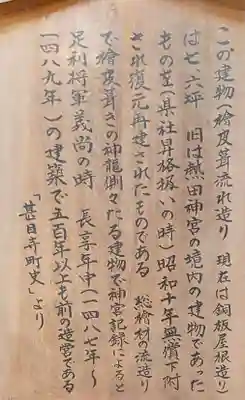 この建物(檜皮葺流れ造り 現在は銅板屋根造り)
は七、六坪 旧は熱田神宮の境内の建物であった
ものを(県社昇格扱いの時)昭和十年無償下附
され復元再建されたものである 総檜材の流造り
で檜皮葺きの神龍側々たる建物で神宮記録によると
足利将軍義尚の時 長享年中(一四八七年〜
一四八九年)の建築で五百年以上も前の造営である
「甚目寺町史」より